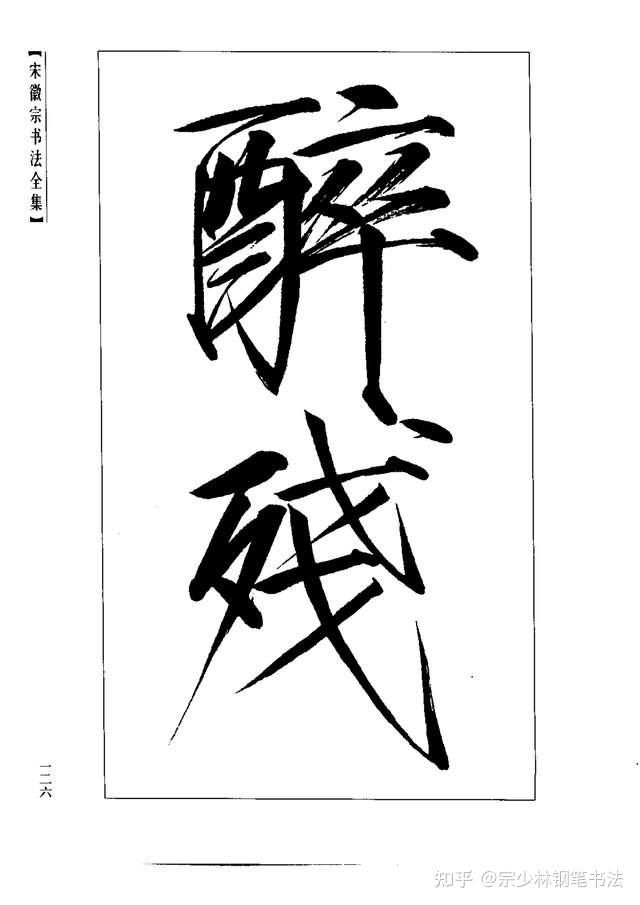 【宋徽宗书法全集】
醉
殘
一二六
知乎 @宗少林钢笔书法